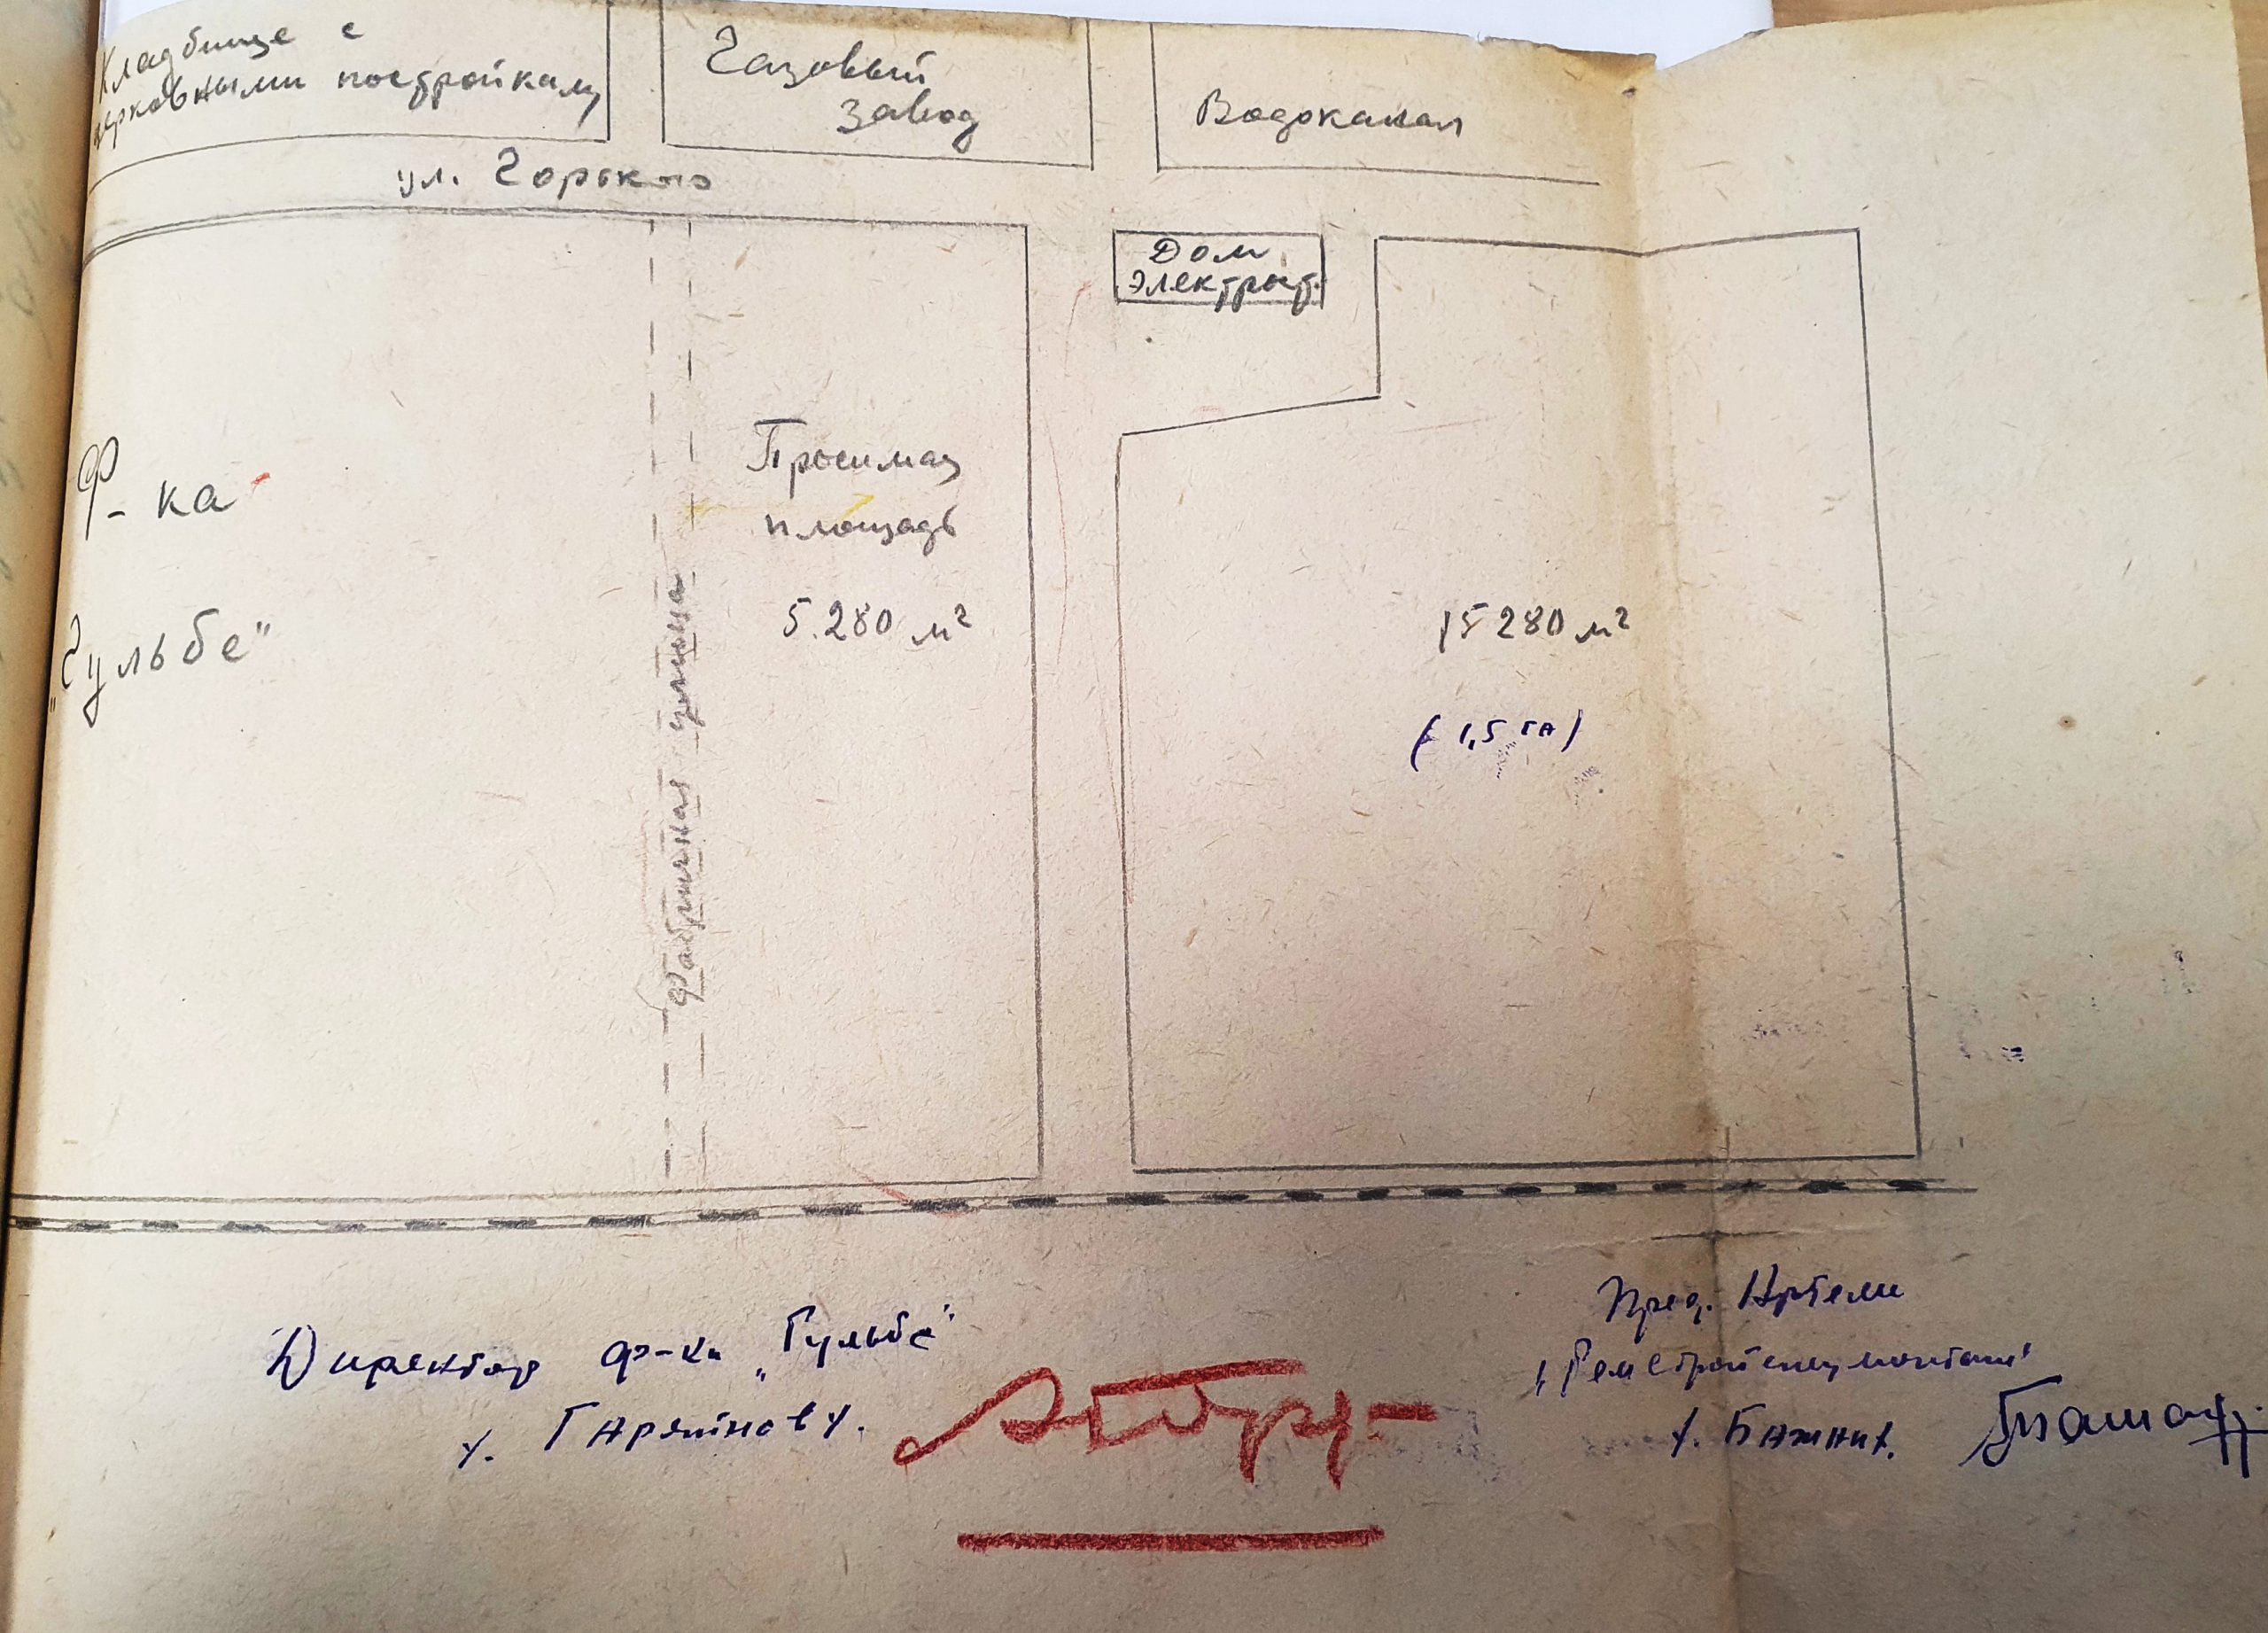 Кладбище с
церковными постройками
Газовый
завод
Водоканал
ул. Горького
Дом
электрит.
Ф-ка
„Гульбе"
Фабричная улица
Просимая
площадь
5.280 м²
15280 м²
(1,5 га)
Директор ф-ки „Гульбе"
т.
Пред. Артели
„Ремстройспецмонтаж"
т. Бажин